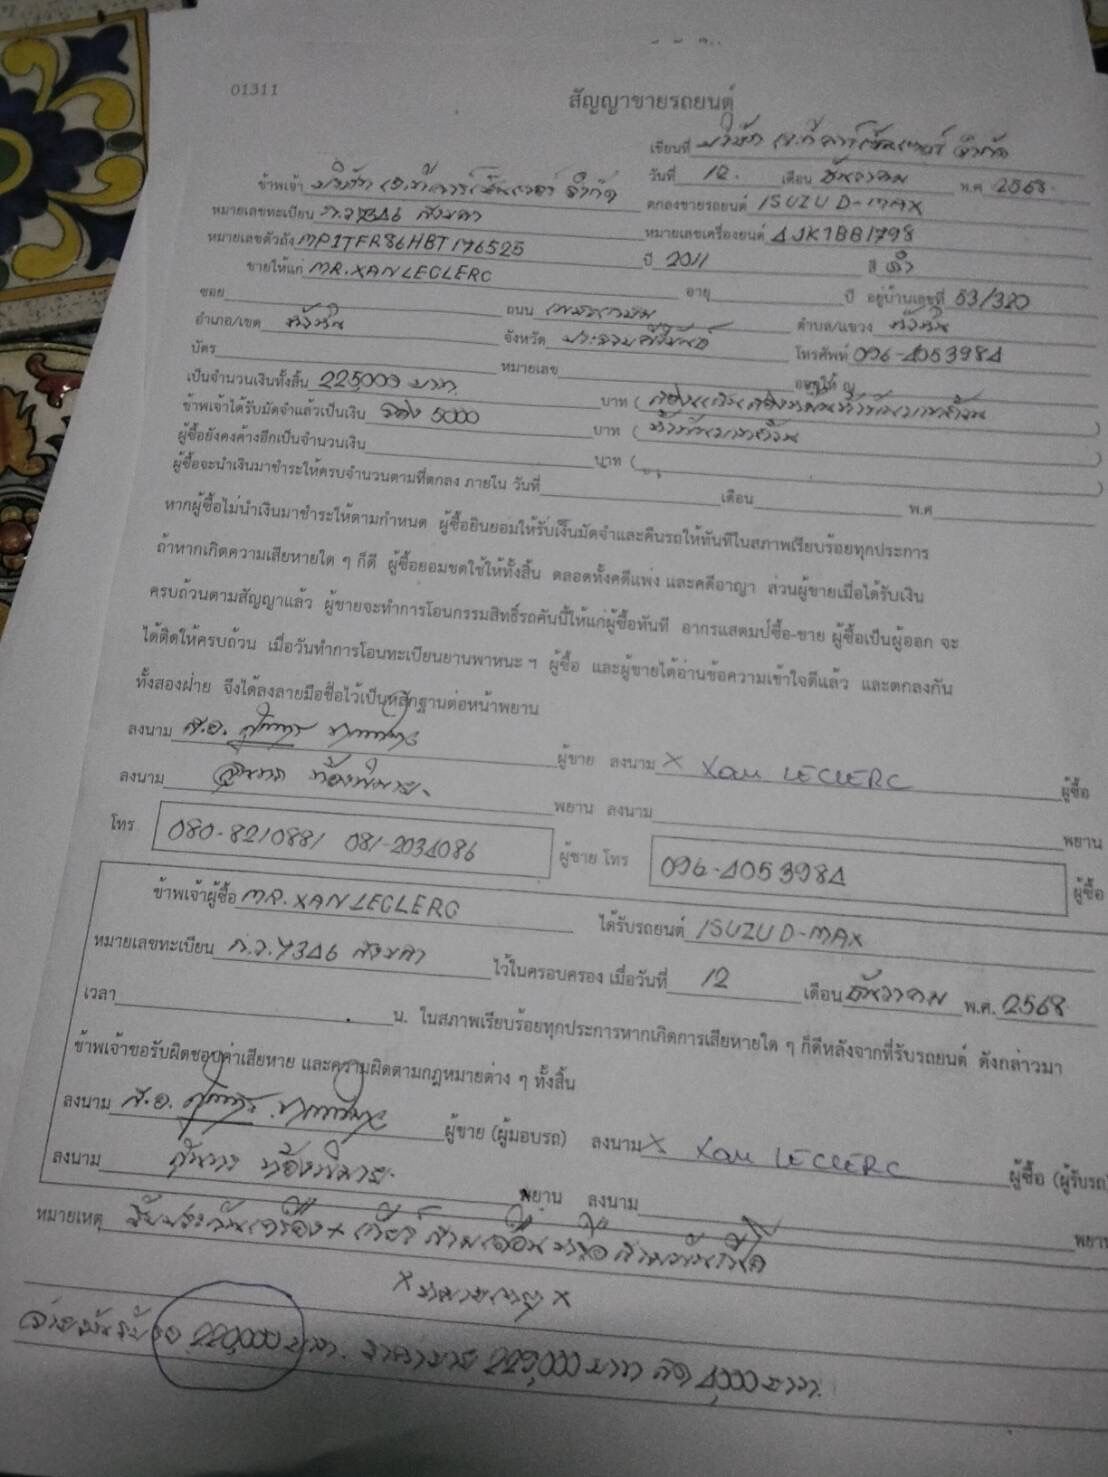 01311
สัญญาขายรถยนต์
เขียนที่ บริษัท เจ.ที คาร์เซ็นเตอร์ จำกัด
วันที่ 12. เดือน ธันวาคม พ.ศ 2568
ข้าพเจ้า บริษัท เจ.ที คาร์เซ็นเตอร์ จำกัด ตกลงขายรถยนต์ ISUZU D-MAX
หมายเลขทะเบียน 7346 สงขลา หมายเลขเครื่องยนต์ 4JK1BB1798
หมายเลขตัวถัง MP1TFR86HBT176525 ปี 2011 สี ดำ
ขายให้แก่ MR.XAN LECLERC อายุ ปี อยู่บ้านเลขที่ 53/320
ซอย ถนน ตำบล/แขวง หัวหิน
อำเภอ/เขต หัวหิน จังหวัด ประจวบคีรีขันธ์ โทรศัพท์ 096-4053984
บัตร หมายเลข ออกให้ ณ
เป็นจำนวนเงินทั้งสิ้น 225,000 บาท บาท ( สองแสนสองหมื่นห้าพันบาทถ้วน
ข้าพเจ้าได้รับมัดจำแล้วเป็นเงิน จอง 5000 บาท ( ห้าพันบาทถ้วน )
ผู้ซื้อยังคงค้างอีกเป็นจำนวนเงิน บาท ( )
ผู้ซื้อจะนำเงินมาชำระให้ครบจำนวนตามที่ตกลง ภายใน วันที่ เดือน พ.ศ )
หากผู้ซื้อไม่นำเงินมาชำระให้ตามกำหนด ผู้ซื้อยินยอมให้ริบเงินมัดจำและคืนรถให้ทันทีในสภาพเรียบร้อยทุกประการ
ถ้าหากเกิดความเสียหายใด ๆ ก็ดี ผู้ซื้อยอมชดใช้ให้ทั้งสิ้น ตลอดทั้งคดีแพ่ง และคดีอาญา ส่วนผู้ขายเมื่อได้รับเงิน
ครบถ้วนตามสัญญาแล้ว ผู้ขายจะทำการโอนกรรมสิทธิ์รถคันนี้ให้แก่ผู้ซื้อทันที อากรแสตมป์ซื้อ-ขาย ผู้ซื้อเป็นผู้ออก จะ
ได้ติดให้ครบถ้วน เมื่อวันทำการโอนทะเบียนยานพาหนะ ฯ ผู้ซื้อ และผู้ขายได้อ่านข้อความเข้าใจดีแล้ว และตกลงกัน
ทั้งสองฝ่าย จึงได้ลงลายมือชื่อไว้เป็นหลักฐานต่อหน้าพยาน
ลงนาม ส.อ. ผู้ขาย ลงนาม X Xan LECLERC ผู้ซื้อ
ลงนาม พยาน ลงนาม พยาน
โทร 080-8210881 081-2034086 ผู้ขาย โทร 096-4053984 ผู้ซื้อ
ข้าพเจ้าผู้ซื้อ MR.XAN LECLERC ได้รับรถยนต์ ISUZU D-MAX
หมายเลขทะเบียน 7346 สงขลา ไว้ในครอบครอง เมื่อวันที่ 12 เดือน ธันวาคม พ.ศ. 2568
เวลา น. ในสภาพเรียบร้อยทุกประการหากเกิดการเสียหายใด ๆ ก็ดีหลังจากที่รับรถยนต์ ดังกล่าวมา
ข้าพเจ้าขอรับผิดชอบค่าเสียหาย และความผิดตามกฎหมายต่าง ๆ ทั้งสิ้น
ลงนาม ส.อ. ผู้ขาย (ผู้มอบรถ) ลงนาม X Xan LECLERC ผู้ซื้อ (ผู้รับรถ)
ลงนาม พยาน ลงนาม พยาน
หมายเหตุ รับประกันเครื่อง + เกียร์ สามเดือน หรือ สามพันกิโล
จ่ายวันรับรถ 220,000 บาท. ราคาขาย 229,000 บาท ลด 4,000 บาท.